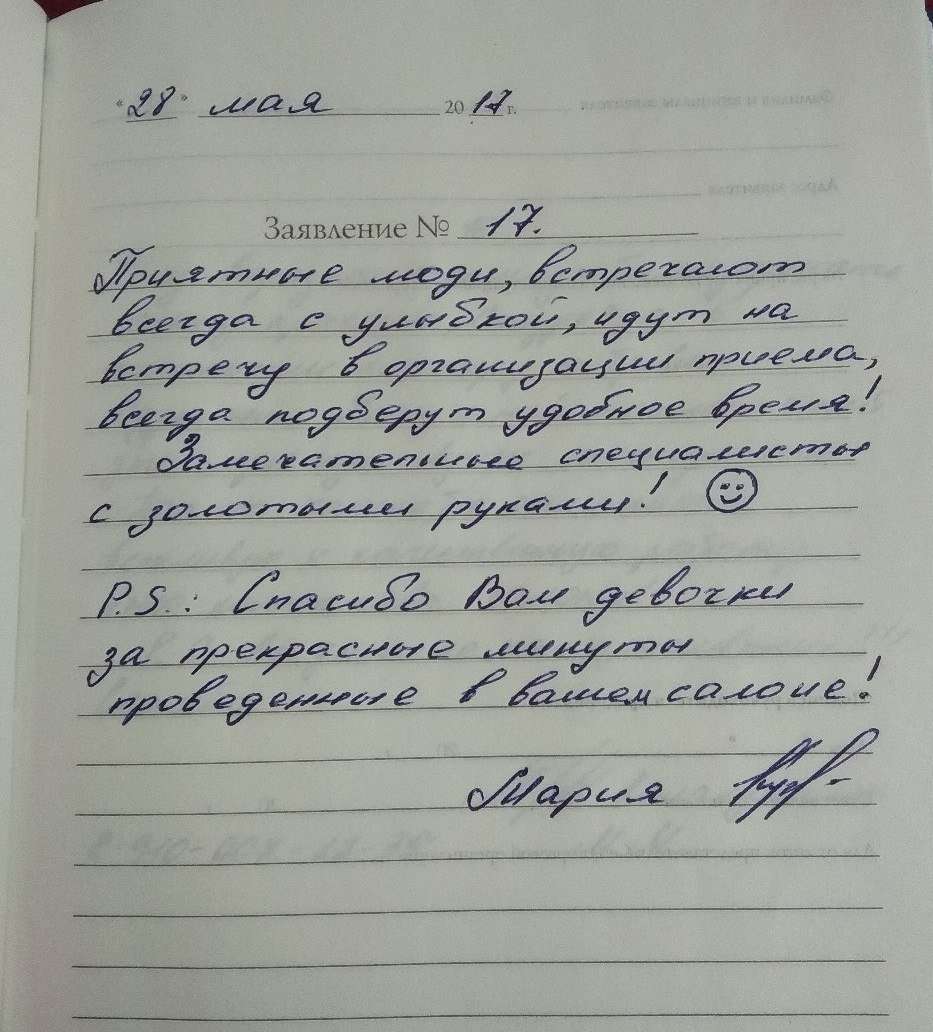 "28" мая 2017 г.
Заявление № 17.
Приятные люди, встречают
всегда с улыбкой, идут на
встречу в организации приема,
всегда подберут удобное время!
Замечательные специалисты
с золотыми руками! ☺
P.S.: Спасибо Вам девочки
за прекрасные минуты
проведенные в вашем салоне!
Мария